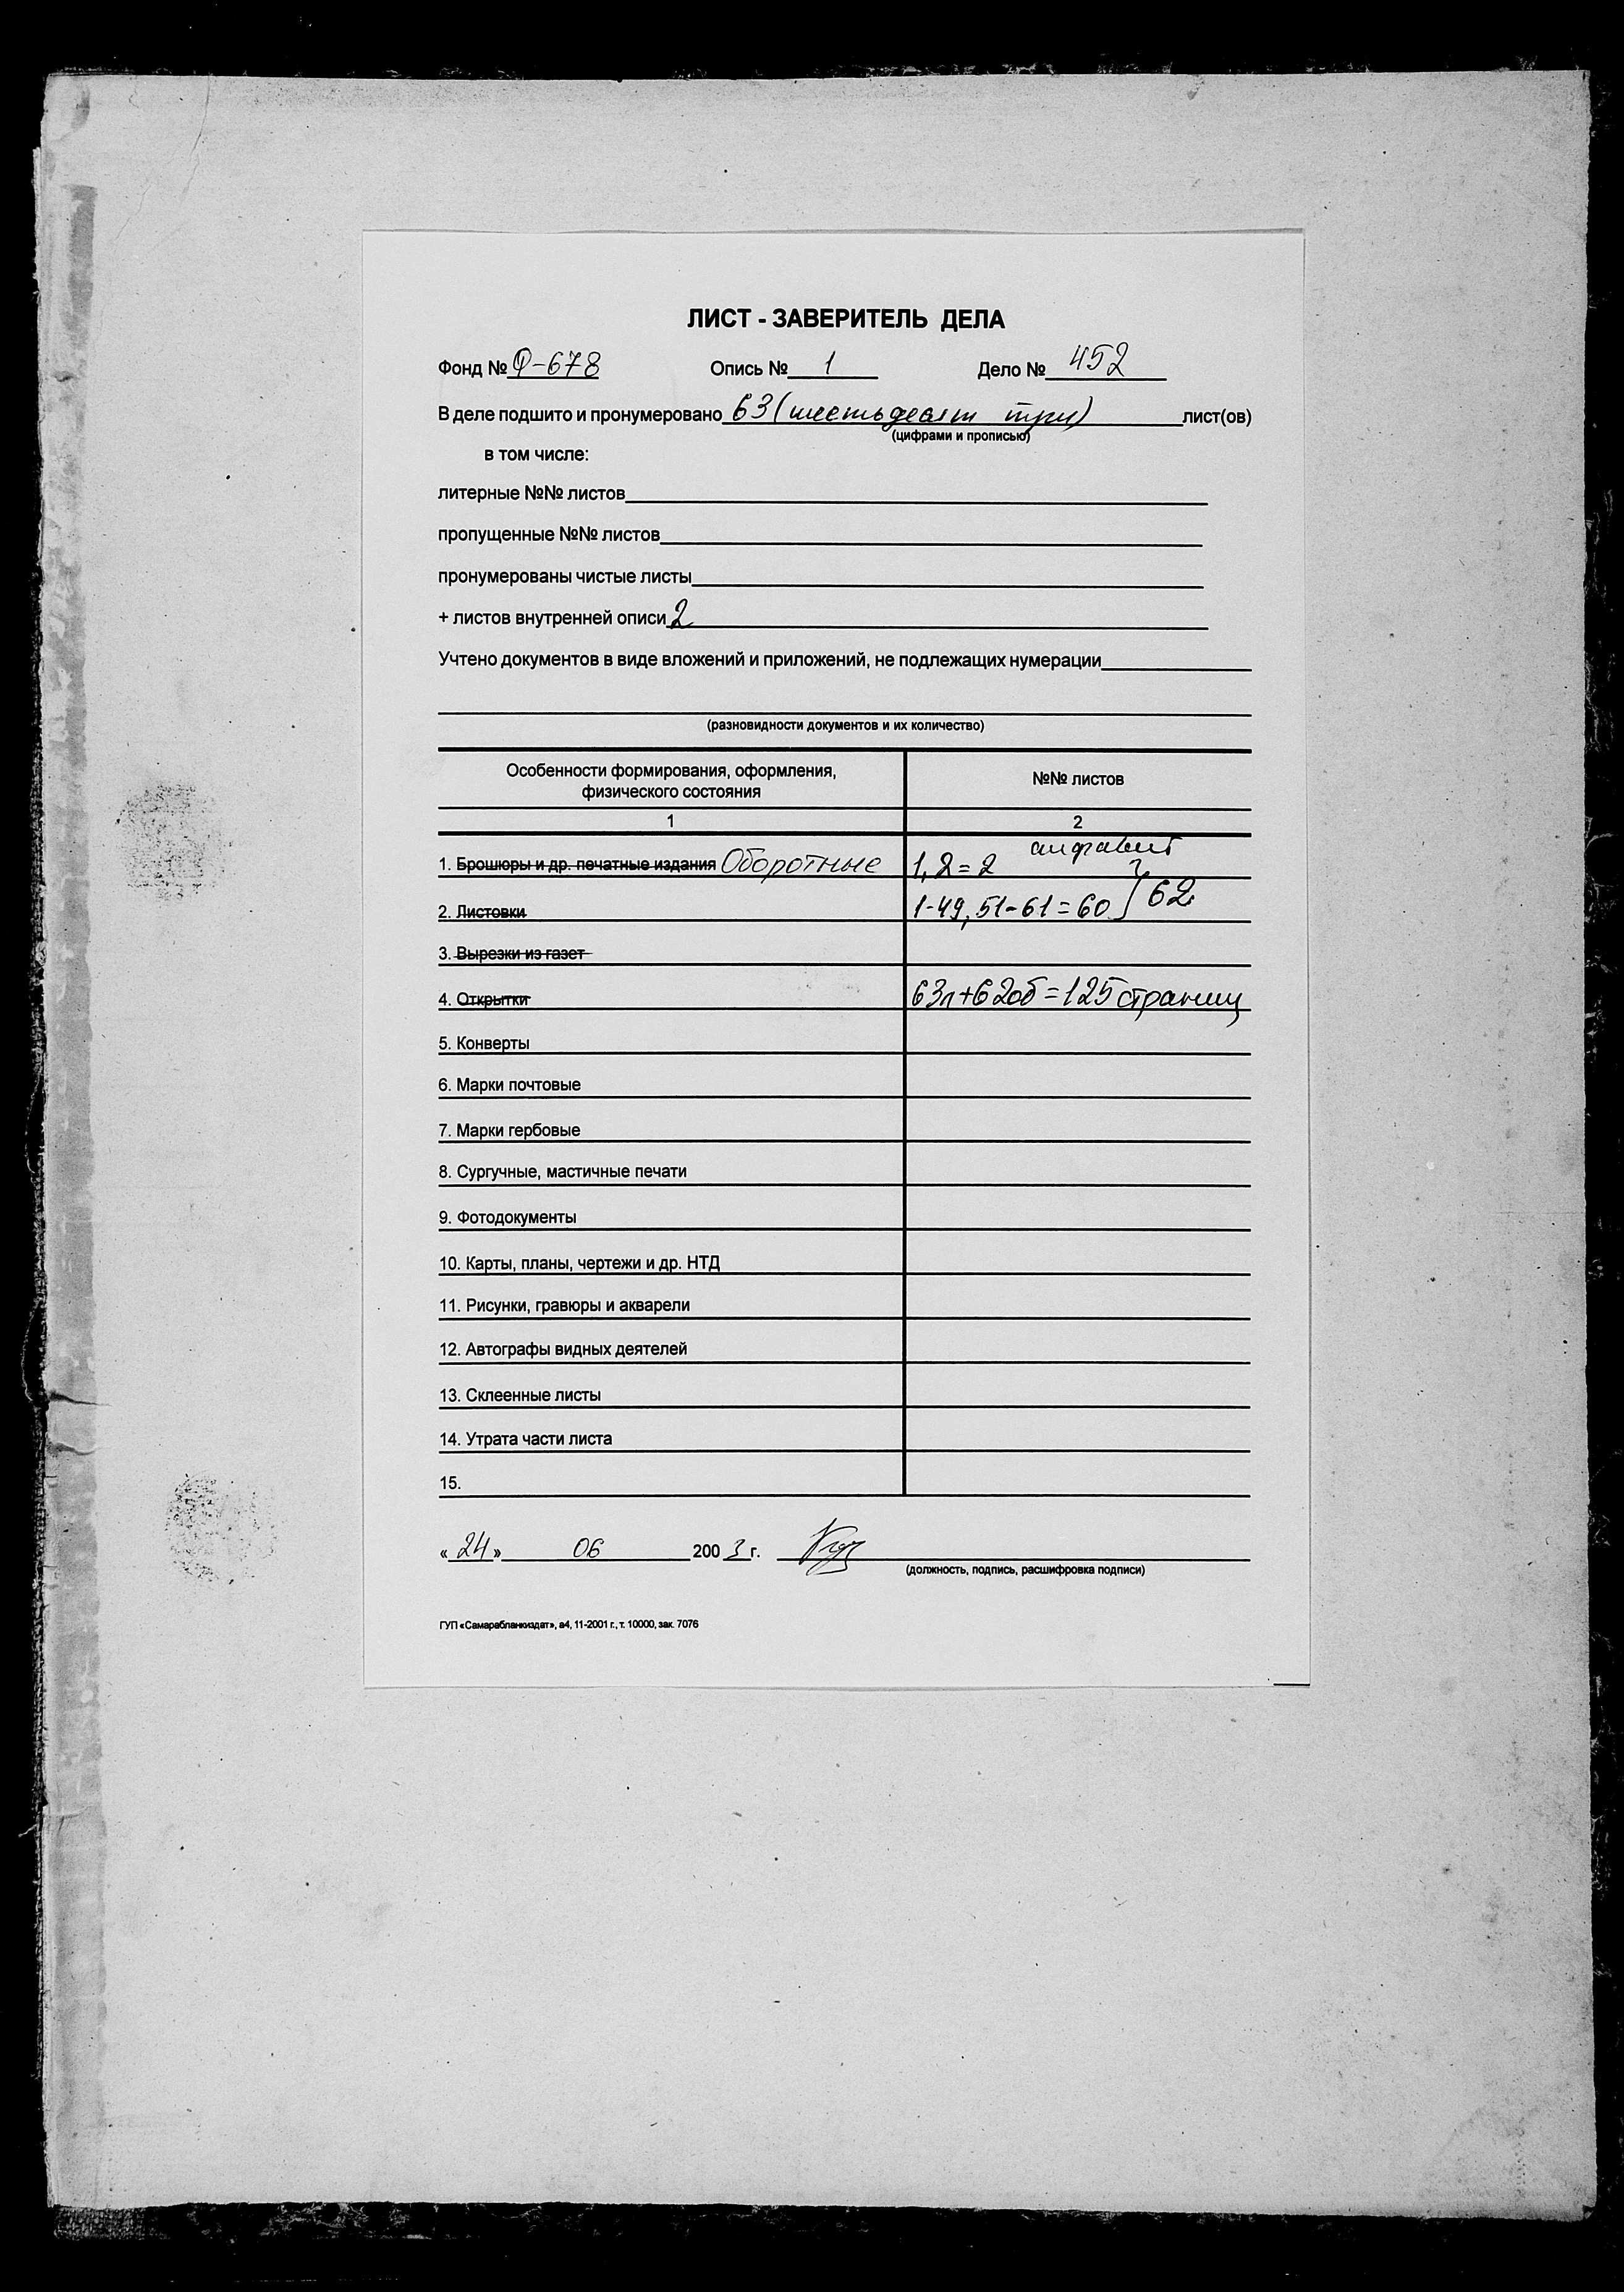 ЛИСТ - ЗАВЕРИТЕЛЬ ДЕЛА
Фонд № Ф-678 Опись № 1 Дело № 452
В деле подшито и пронумеровано 63 (шестьдесят три) лист(ов)
(цифрами и прописью)
в том числе:
литерные №№ листов
пропущенные №№ листов
пронумерованы чистые листы
+ листов внутренней описи 2
Учтено документов в виде вложений и приложений, не подлежащих нумерации
(разновидности документов и их количество)
Особенности формирования, оформления, №№ листов
физического состояния
1 2
алфавит
1. Брошюры и др. печатные издания Оборотные 1, 2 = 2
2. Листовки 1-49, 51-61 = 60 } 62
3. Вырезки из газет
4. Открытки 63л + 62об = 125 страниц
5. Конверты
6. Марки почтовые
7. Марки гербовые
8. Сургучные, мастичные печати
9. Фотодокументы
10. Карты, планы, чертежи и др. НТД
11. Рисунки, гравюры и акварели
12. Автографы видных деятелей
13. Склеенные листы
14. Утрата части листа
15.
« 24 » 06 200 3 г.
(должность, подпись, расшифровка подписи)
ГУП «Самарабланкиздат», а4, 11-2001 г., т. 10000, зак. 7076